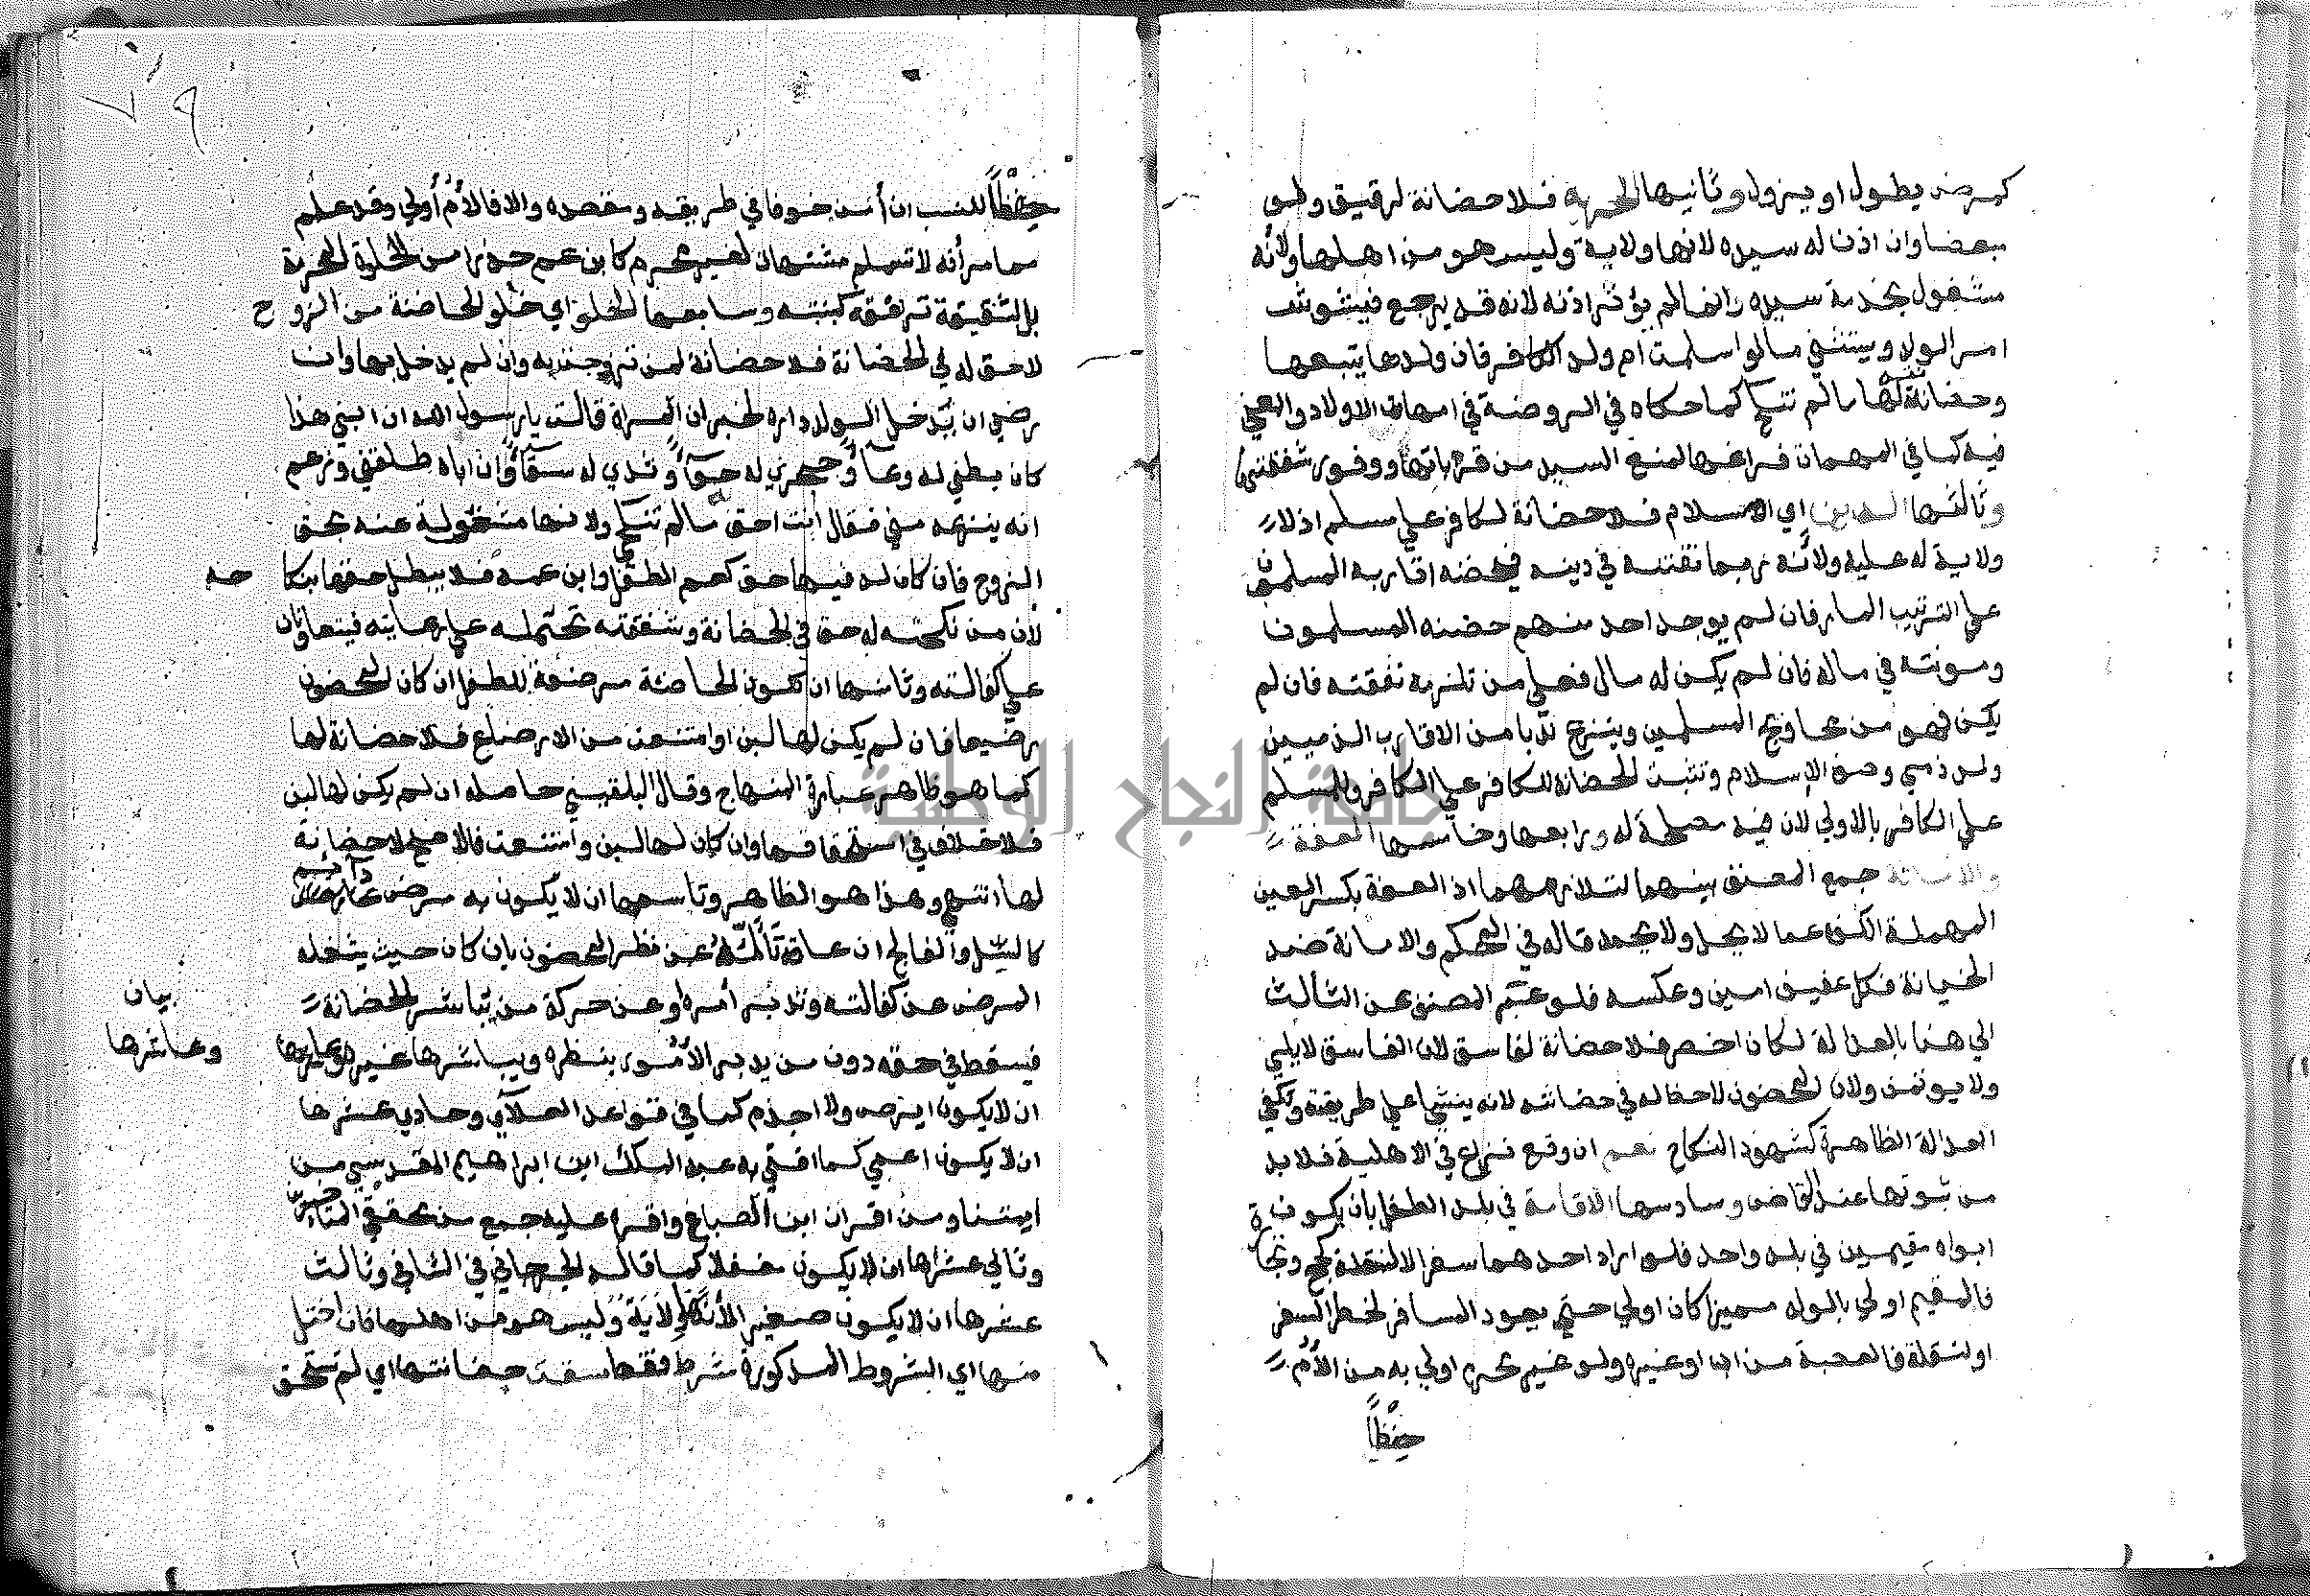 كمرض يطول او يزول وثانيها الحرية فلا حضانة لرقيق ولمن
بعضا وان اذن له سيده لانها ولاية وليس هو من اهلها ولأنه
مشغول بخدمة سيده وانما لم يؤثر اذنه لانه قد يرجع فيتشوش
امر الولد ويستثنى ما لو اسلمت ام ولد الكافر فان ولدها يتبعها
وحضانته لها ما لم تنكح كما حكاه في الروضة في امهات الاولاد والمعنى
فيه كما في المهمات فراغها لمنع السيد من قربانها ووفور شفقتها
وثالثها الدين اي الاسلام فلا حضانة لكافر على مسلم اذ لا
ولاية له عليه ولأنه ربما تفتنه في دينه فيحضنه اقاربه المسلمون
على الترتيب المار فان لم يوجد احد منهم حضنه المسلمون
ومونته في ماله فان لم يكن له مال فعلى من تلزمه نفقته فان لم
يكن فهو من محاويج المسلمين وينزع ندبا من الاقارب الذميين
ولد ذمي وصف الإسلام وتثبت الحضانة للكافر على الكافر وللمسلم
على الكافر بالاولى لان فيه مصلحة له ورابعها وخامسها العفة
والامانة جمع المصنف بينهما لتلازمهما اذ العفة بكسر العين
المهملة الكف عما لا يحل ولا يحمد قاله في المحكم والامانة ضد
الخيانة فكل عفيف امين وعكسه فلو عبّر المصنف عن الثالث
الى هنا بالعدالة لكان اخصر فلا حضانة لفاسق لان الفاسق لا يلي
ولا يوتمن ولان المحضون لا حظ له في حضانته لانه ينشا على طريقته وتكفي
العدالة الظاهرة كشهود النكاح نعم ان وقع نزاع في الاهلية فلا بد
من ثبوتها عند القاضي وسادسها الاقامة في بلد الطفل بان يكون
ابواه مقيمين في بلد واحد فلو اراد احدهما سفرا لا لنقلة كحج وتجارة
فالمقيم اولى بالولد مميزا كان اولى حتى يعود المسافر لخطر السفر
او لنقلة فالعصبة من اب او غيره ولو غير محرم اولى به من الأم
حفظاً
٧٩
حفظاً للنسب ان أمن خوفا في طريقه ومقصده والا فالأم أولى وقد علم
مما مر أنه لا تسلم مشتهاة لغير محرم كابن عم حذرا من الخلوة المحرمة
بل لثقة ترافقه كبنته وسابعها الخلو اي خلو الحاضنة من الزوج
لا حق له في الحضانة فلا حضانة لمن تزوجت به وان لم يدخل بها وان
رضي ان يدخل الولد داره لخبر ان امراة قالت يا رسول الله ان ابني هذا
كان بطني له وعآءً وحجري له حوآءً وثدي له سقآءً وان اباه طلقني وزعم
انه ينزعه مني فقال انت احق به ما لم تنكحي ولانها مشغولة عنه بحق
الزوج فان كان له فيها حق كعم الطفل وابن عمه فلا يبطل حقها بنكاحه
لان من نكحته له حق في الحضانة وشفقته تحمله على رعايته فيتعاونان
على كفالته وثامنها ان تكون الحاضنة مرضعة للطفل ان كان المحضون
رضيعا فان لم يكن لها لبن او امتنعت من الارضاع فلا حضانة لها
كما هو ظاهر عبارة المنهاج وقال البلقيني حاصله ان لم يكن لها لبن
فلا خلاف في استحقاقها وان كان لها لبن وامتنعت فالاصح لا حضانة
لها انتهى وهذا هو الظاهر وتاسعها ان لا يكون به مرض دائم
كالسل والفالج ان عاق تألمه عن نظر المحضون بان كان حيث يشغله
المرض عن كفالته وتدبير أمره او عن حركة من يباشر الحضانة
فيسقط في حقه دون من يدبر الأمور بنظره ويباشرها غيره
بيان
وعاشرها
ان لا يكون ابرص ولا اجذم كما في قواعد العلآي وحادي عشرها
ان لا يكون اعمى كما افتى به عبد الملك ابن ابراهيم المقدسي من
ايمتنا ومن اقران ابن الصباغ واقره عليه جمع من محققي المتاخرين
وثاني عشرها ان لا يكون مغفلا كما قاله الجرجاني في الشافي وثالث
عشرها ان لا يكون صغيرا لأنها ولاية وليس هو من اهلها فان اختل
منها اي الشروط المذكورة شرط فقط سقطت حضانتها اي لم تستحق